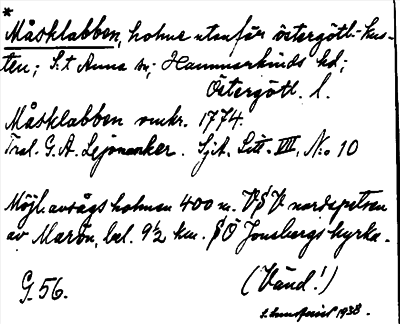 *
Måsklabben, holme utanför östergötl.-kus-
ten; S:t Anna sn; Hammarkinds hd;
Östergötl. l.
Måsklabben omkr. 1774.
Tral. G. A. Lejonanker. SjA. Litt. VIII, N:o 10
Möjl. avsågs holmen 400 m. VSV. nordspetsen
av Marön, bel. 9½ km. SÖ Jonsbergs kyrka.
G. 56.
(Vänd!)
1938.